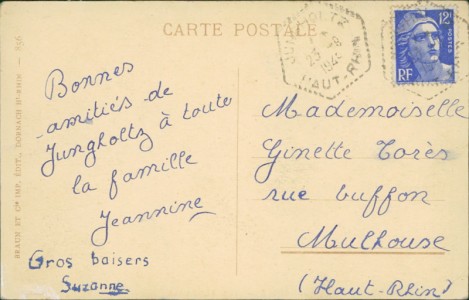 CARTE POSTALE
JUNGHOLTZ
23-8
HAUT-RHIN
12F
POSTES
RF
Bonnes
amitiés de
Jungholtz à toute
la famille
Jeannine
Gros baisers
Suzanne
Mademoiselle
Ginette Torès
rue buffon
Mulhouse
(Haut-Rhin)
BRAUN ET Cie IMP. ÉDIT., DORNACH Ht-RHIN